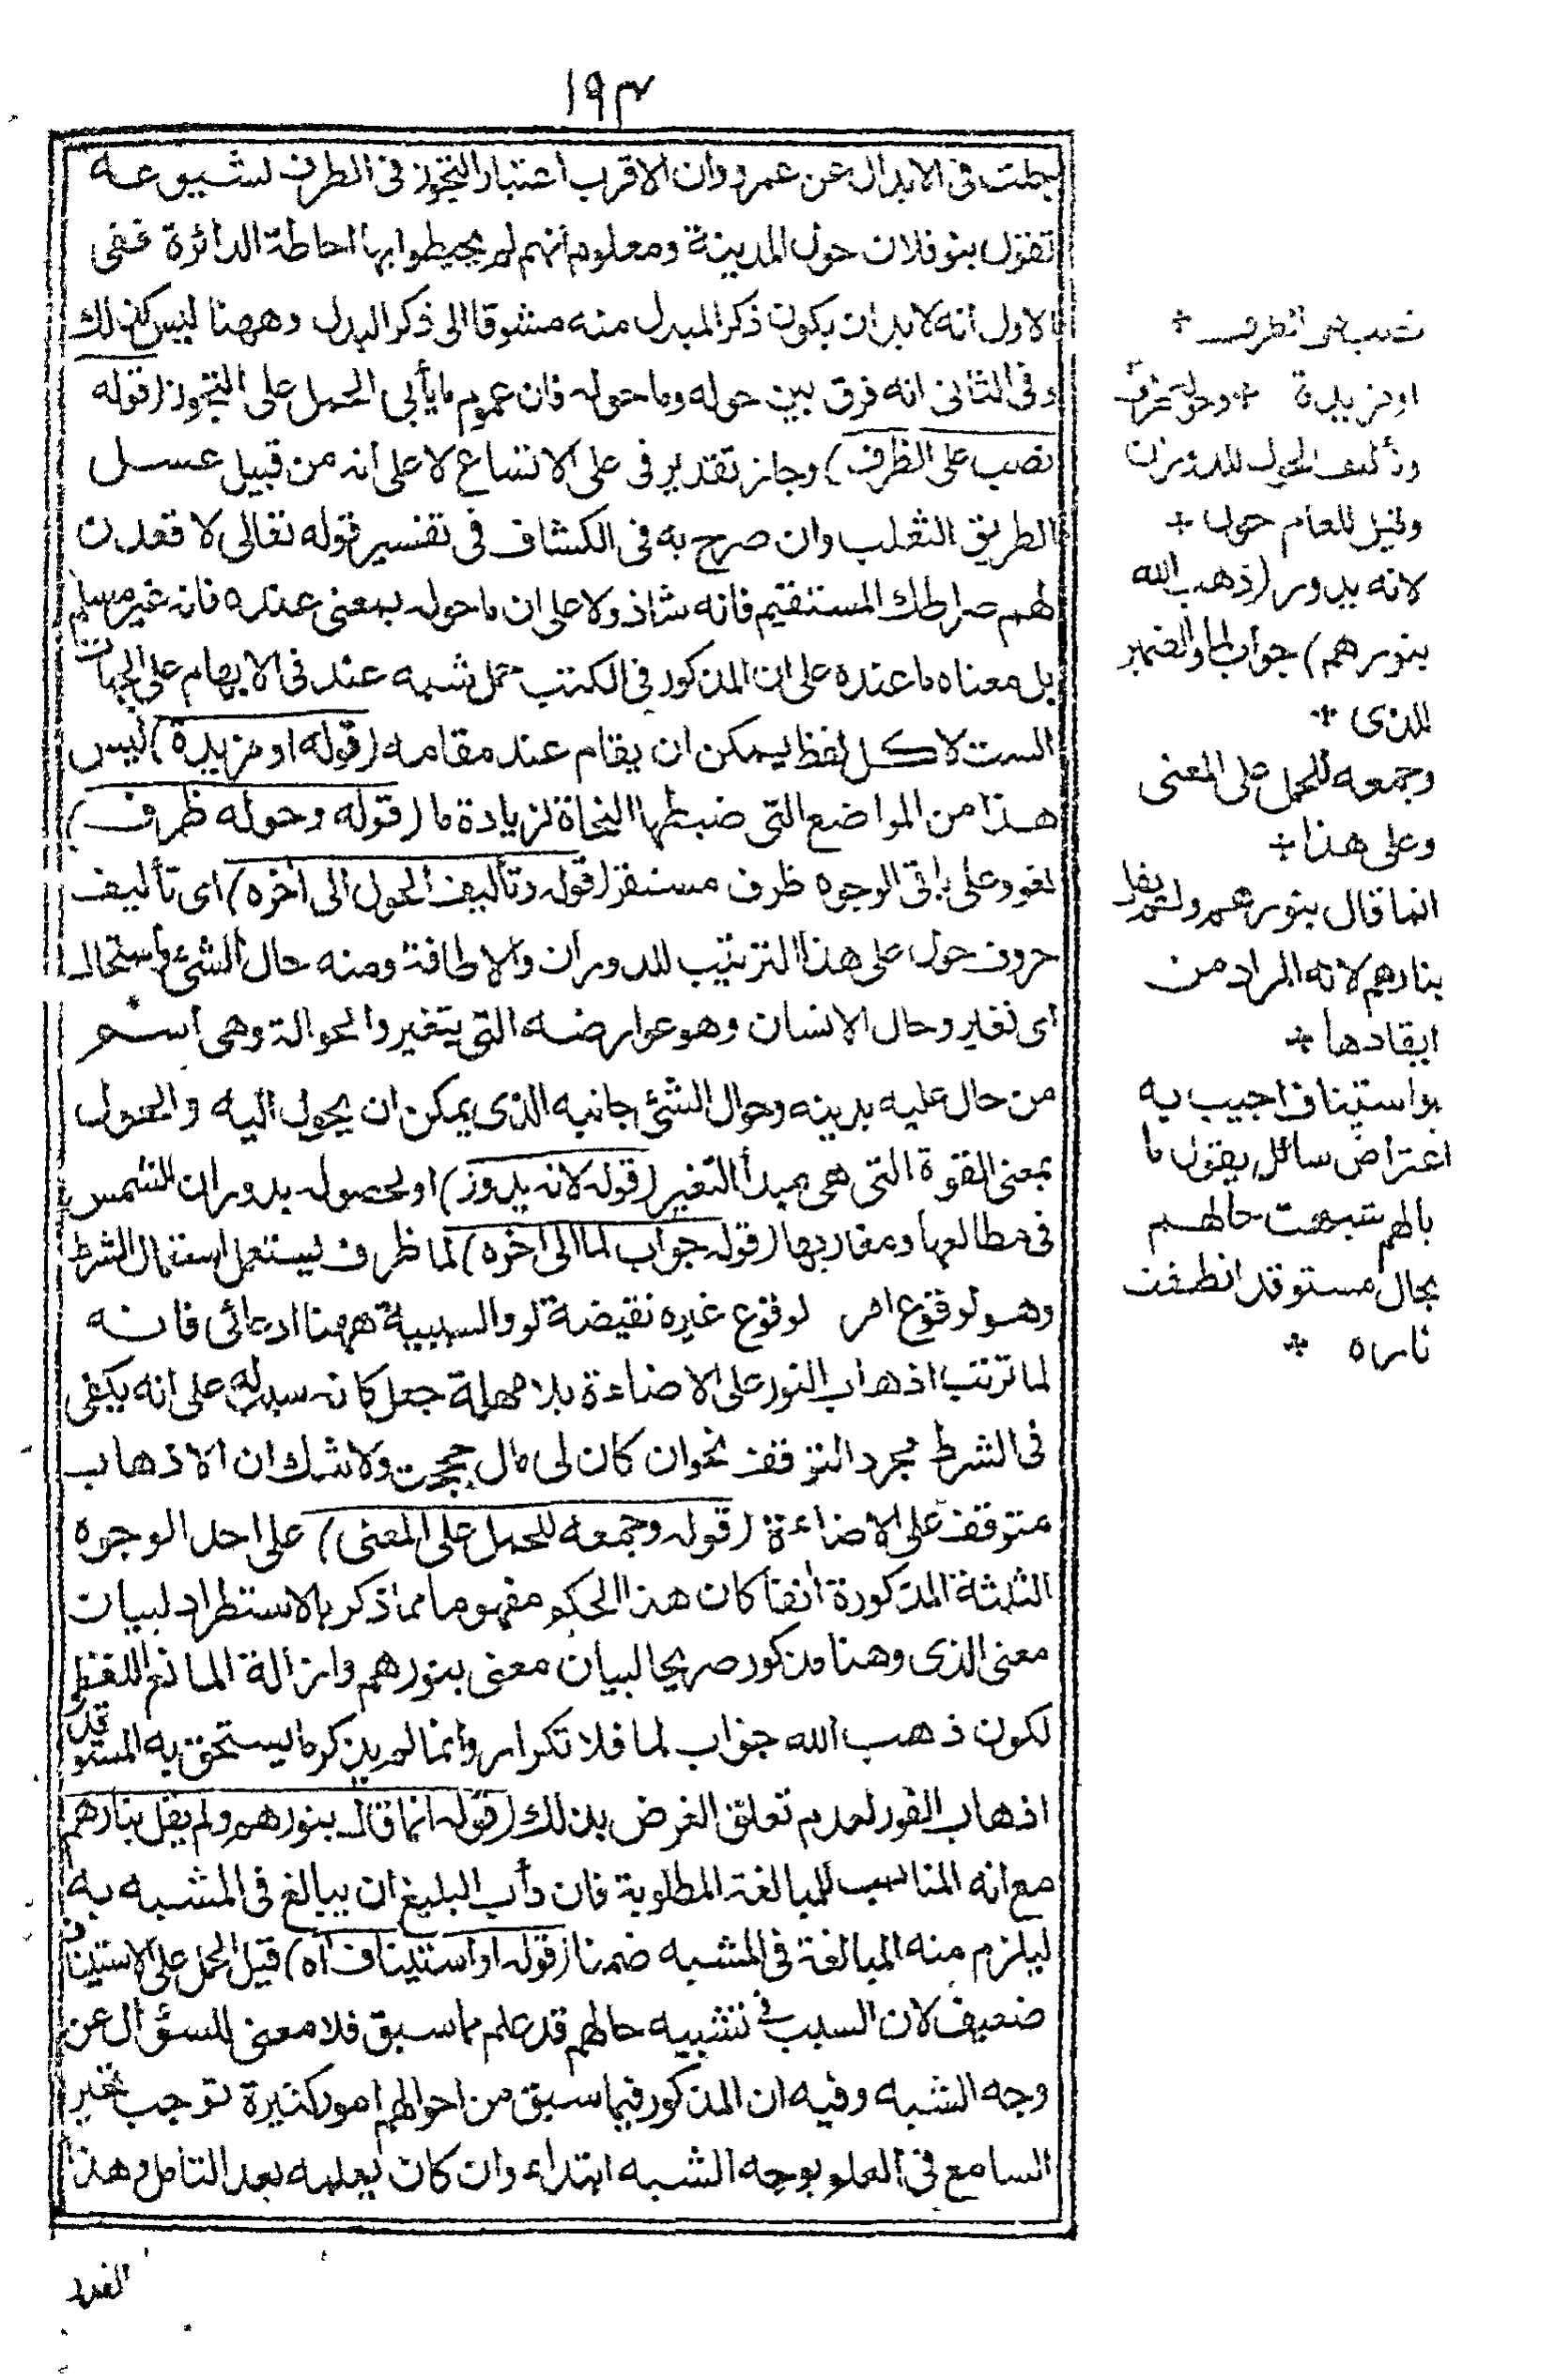 ١٩٣
جملت فى الابدال عن عمرو وان الاقرب اعتبار التجوز فى الظرف لشيوعه
تقول بنو فلان حول المدينة ومعلوم انهم لم يحيطوا بها احاطة الدائرة ففى
الاول انه لا بد ان يكون ذكر المبدل منه مشوقا الى ذكر البدل وههنا ليس كذلك
وفى الثانى انه فرق بين حوله وما حوله فان عموم ما يأبى الحمل على التجوز (قوله
نصب على الظرف) وجاز تقدير فى على الاتساع لا على انه من قبيل عسل
الطريق الثعلب وان صرح به فى الكشاف فى تفسير قوله تعالى لا قعدن
لهم صراطك المستقيم فانه شاذ ولا على ان ما حوله بمعنى عنده فانه غير مسلم
بل معناه ما عنده على ان المذكور فى الكتب حمل شبه عند فى الابهام على الجهات
الست لا كل لفظ يمكن ان يقام عند مقامه (قوله او مزيدة) ليس
هذا من المواضع التى ضبطها النحاة لزيادة ما (قوله وحوله ظرف)
لغو وعلى باقى الوجوه ظرف مستقر (قوله وتأليف الحول الى آخره) اى تأليف
حروف حول على هذا الترتيب للدوران والاطافة ومنه حال الشئ واستحال
اى تغير وحال الانسان وهو عوارضه التى يتغير والحوالة وهى اسم
من حال عليه بدينه وحوال الشئ جانبه الذى يمكن ان يحول اليه والحول
بمعنى القوة التى هى مبدأ التغير (قوله لانه يدور) او لحصوله بدوران الشمس
فى مطالعها ومغاربها (قوله جواب لما الى آخره) لما ظرف يستعمل استعمال الشرط
وهو لوقوع امر لوقوع غيره نقيضة لو والسببية ههنا ادعائى فانه
لما ترتب اذهاب النور على الاضاءة بلا مهلة جعل كانه سبب له على انه يكفى
فى الشرط مجرد التوقف نحو ان كان لى مال حججت ولا شك ان الاذهاب
متوقف على الاضاءة (قوله وجمعه للحمل على المعنى) على احد الوجوه
الثلثة المذكورة آنفا كان هذا الحكم مفهوما مما ذكر بالاستطراد لبيان
معنى الذى وهنا مذكور صريحا لبيان معنى بنورهم وازالة المانع اللفظى
لكون ذهب الله جواب لما فلا تكرار وانما لم يذكر ما يستحق به المستوقد
اذهاب النور لعدم تعلق الغرض بذلك (قوله انما قال بنورهم ولم يقل بنارهم
مع انه المناسب للمبالغة المطلوبة فان دأب البليغ ان يبالغ فى المشبه به
ليلزم منه المبالغة فى المشبه ضمنا (قوله او استيناف اه) قيل الحمل على الاستيناف
ضعيف لان السبب فى تشبيه حالهم قد علم مما سبق فلا معنى للسؤال عن
وجه الشبه وفيه ان المذكور فيما سبق من احوالهم امور كثيرة توجب تحير
السامع فى العلم بوجه الشبه ابتداء وان كان يعلمه بعد التامل وهذا
نصب على الظرف
او مزيدة وحوله ظرف
وتأليف الحول للدوران
وقيل للعام حول
لانه يدور (ذهب الله
بنورهم) جواب لما والضمير
للذى
وجمعه للحمل على المعنى
وعلى هذا
انما قال بنورهم ولم يقل
بنارهم لانه المراد من
ايقادها
او استيناف اجيب به
اعتراض سائل يقول ما
بالهم شبهت حالهم
بحال مستوقد انطفت
ناره